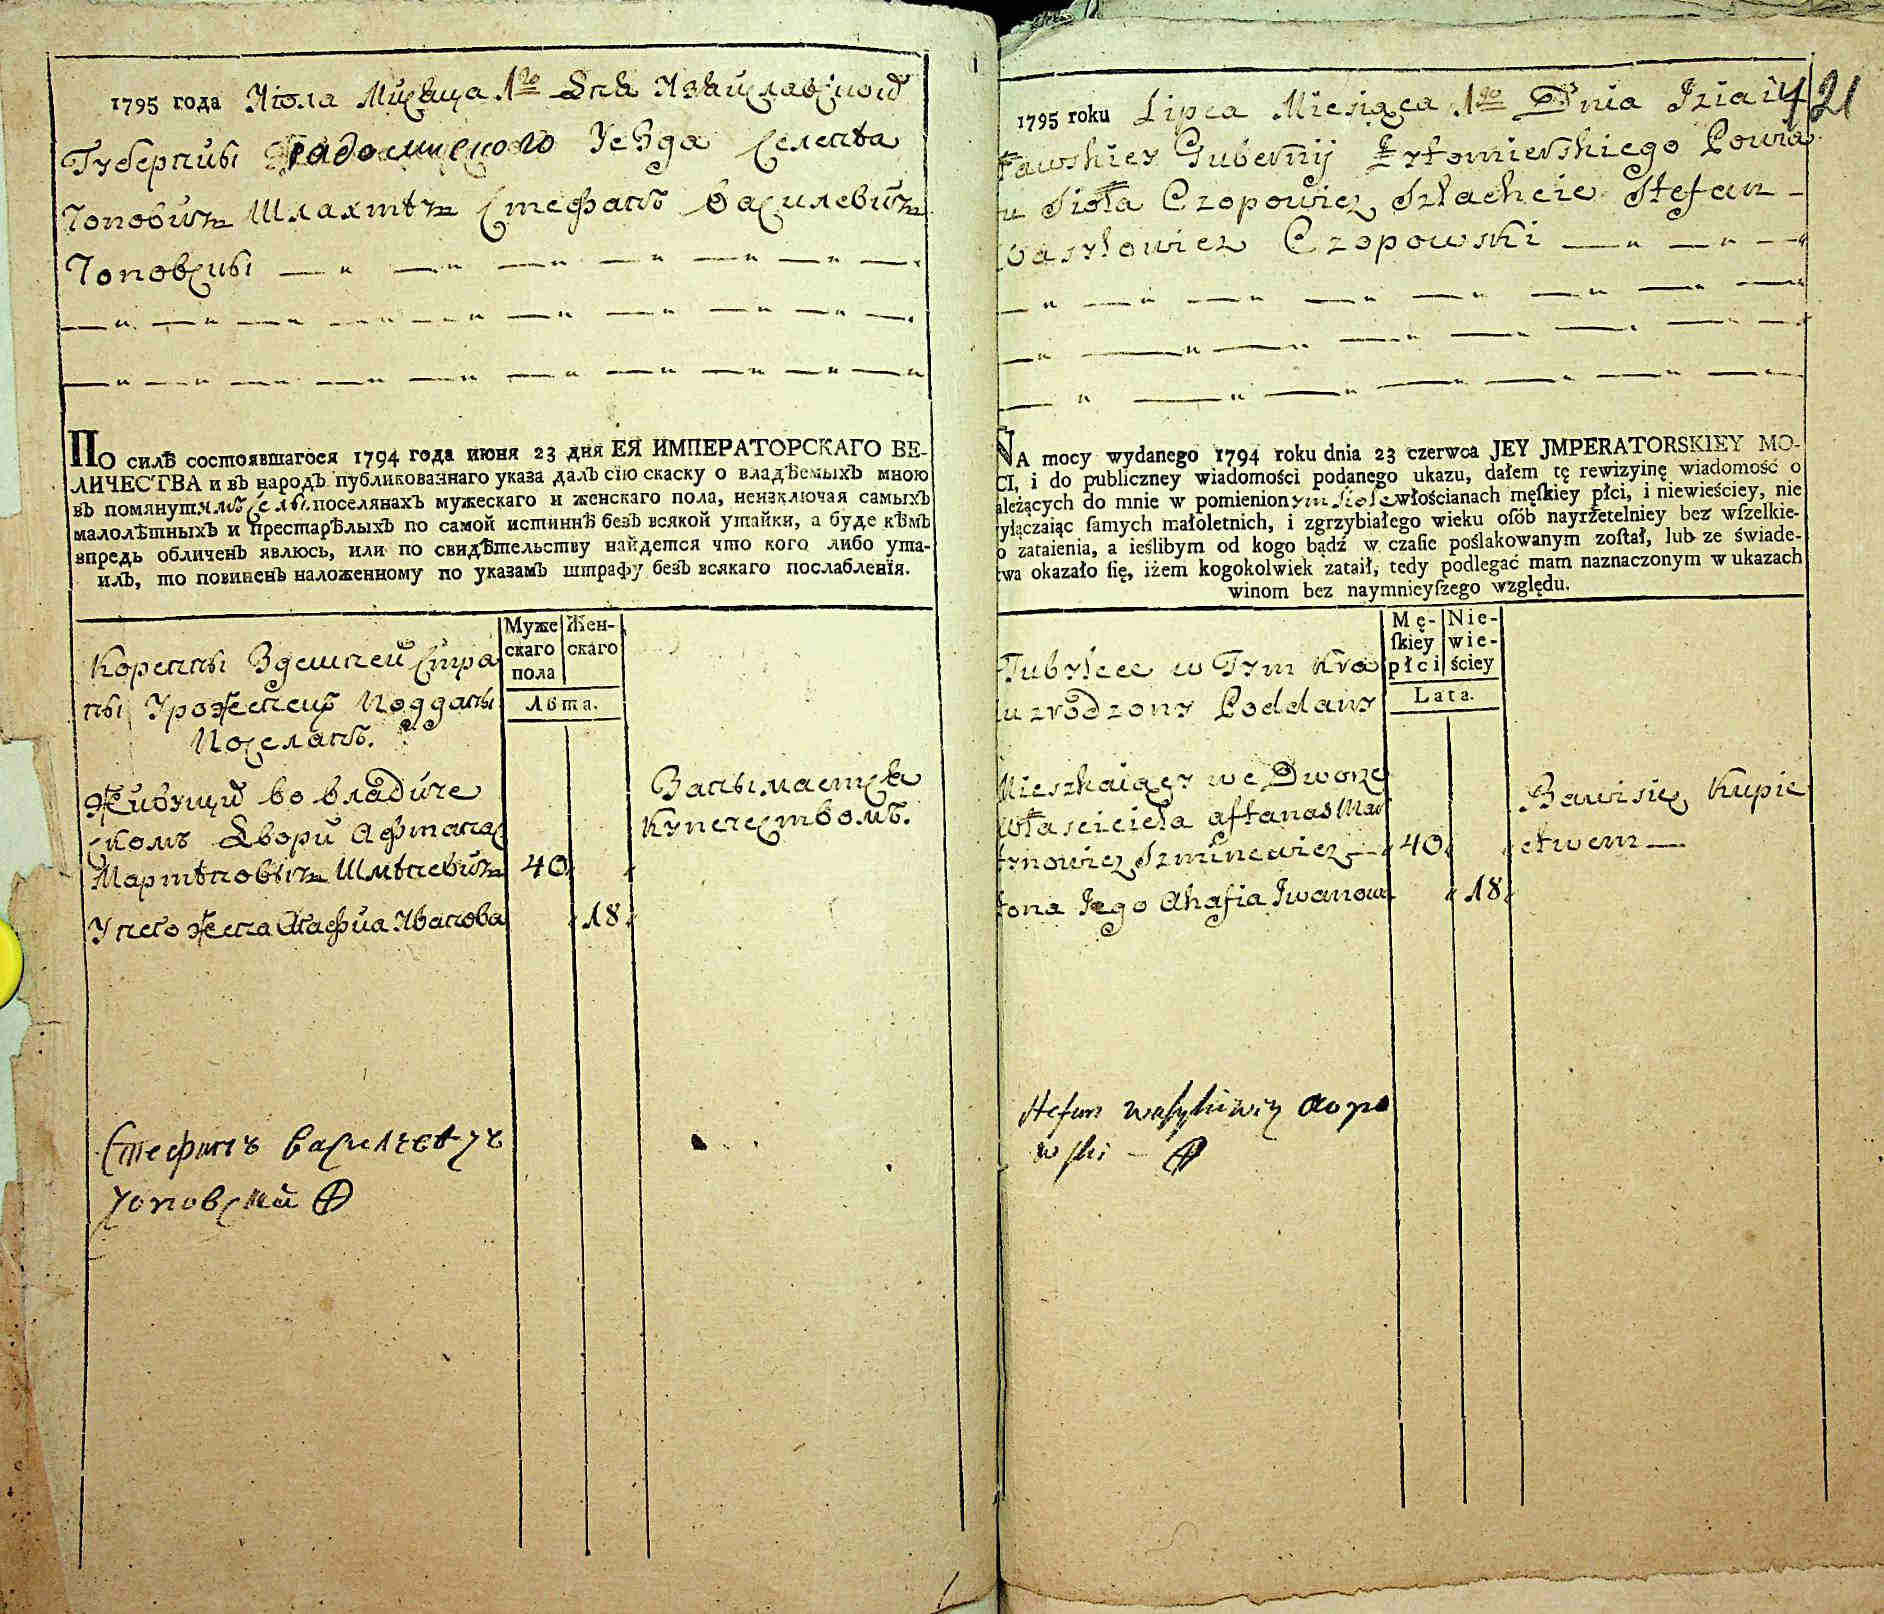 1795 года Июля Мисяца 1го Дня Изяйславской
Губернии Радомиского Уезда Селения
Чоповичъ Шляхтичъ Стефанъ Василевичъ
Чоповски
По силѣ состоявшагося 1794 года июня 23 дня ЕЯ ИМПЕРАТОРСКАГО ВЕ-
ЛИЧЕСТВА и въ народъ публикованнаго указа далъ сїю скаску о владѣемыхъ мною
въ помянутымъ селы поселянахъ мужескаго и женскаго пола, неизключая самыхъ
малолѣтныхъ и престарѣлыхъ по самой истиннѣ безъ всякой утайки, а буде кѣмъ
впредь обличенъ явлюсь, или по свидѣтельству найдется что кого либо ута-
илъ, то повиненъ наложенному по указамъ штрафу безъ всякаго послабленїя.
Муже
скаго
пола
Жен-
скаго
Лѣта.
Коренны Здешней Стра
ны Уроженецъ Поддани
Поселянъ.
Живущий во владиче
скомъ Двори Афтанас
Мартиновичъ Шмѣневичъ 40
Занымается
купечествомъ.
У него жена Агафиа Иванова 18
Стефанъ Василевичъ
Чоповский
1795 roku Lipca Miesiąca 1go Dnia Iziai
421
ławskiey Gubernij Żytomierskiego Powia
u Sioła Czopowicz Szlachcic Stefan
Waszłowicz Czopowski
NA mocy wydanego 1794 roku dnia 23 czerwca JEY JMPERATORSKIEY MO-
CI, i do publiczney wiadomości podanego ukazu, dałem tę rewizyinę wiadomość o
ależących do mnie w pomienionym Siole włościanach męſkiey płci, i niewieściey, nie
yłączaiąc ſamych małoletnich, i zgrzybiałego wieku oſób nayrzetelniey bez wſzelkie-
o zataienia, a ieślibym od kogo bądź w czaſie poślakowanym zoſtał, lub ze świade-
twa okazało ſię, iżem kogokolwiek zataił, tedy podlegać mam naznaczonym w ukazach
winom bez naymnieyſzego względu.
Mę-
ſkiey
płci
Nie-
wie-
ściey
Lata.
Tubylcee w Tym Kra
u zrodzony Poddany
Mieszkaiący we Dworze
Własciciela aftanas Mar
tynowicz Szminewicz 40
Bawi się Kupie
ctwem
żona Jego Ahafia Iwanowa 18
Stefan Wasylewicz Czopo
wski